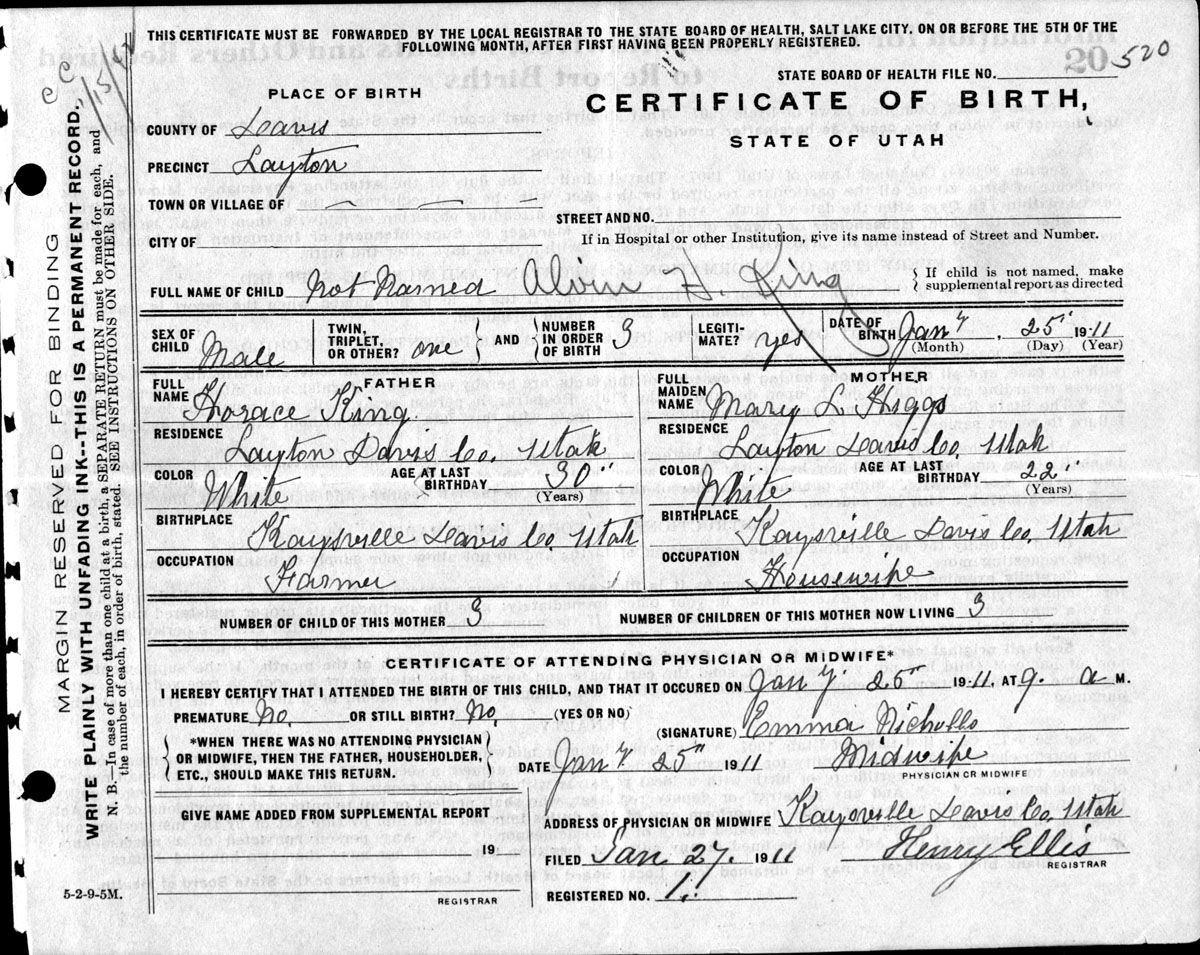 THIS CERTIFICATE MUST BE FORWARDED BY THE LOCAL REGISTRAR TO THE STATE BOARD OF HEALTH, SALT LAKE CITY, ON OR BEFORE THE 5TH OF THE
FOLLOWING MONTH, AFTER FIRST HAVING BEEN PROPERLY REGISTERED.
520
STATE BOARD OF HEALTH FILE NO.
PLACE OF BIRTH
CERTIFICATE OF BIRTH,
STATE OF UTAH
COUNTY OF Davis
PRECINCT Layton
TOWN OR VILLAGE OF — — —
STREET AND NO.
CITY OF
If in Hospital or other Institution, give its name instead of Street and Number.
FULL NAME OF CHILD Not Named Alvin H. King
{ If child is not named, make
supplemental report as directed
SEX OF CHILD Male
TWIN, TRIPLET, OR OTHER? one
AND
NUMBER IN ORDER OF BIRTH 3
LEGITIMATE? yes
DATE OF BIRTH Jany, 25" 1911
(Month) (Day) (Year)
FATHER
FULL NAME Horace King.
RESIDENCE
Layton Davis Co, Utah
COLOR White
AGE AT LAST BIRTHDAY 30"
(Years)
BIRTHPLACE
Kaysville Davis Co, Utah
OCCUPATION
Farmer
MOTHER
FULL MAIDEN NAME Mary L Higgs
RESIDENCE
Layton Davis Co, Utah
COLOR White
AGE AT LAST BIRTHDAY 22"
(Years)
BIRTHPLACE
Kaysville Davis Co, Utah
OCCUPATION
Housewife
NUMBER OF CHILD OF THIS MOTHER 3
NUMBER OF CHILDREN OF THIS MOTHER NOW LIVING 3
CERTIFICATE OF ATTENDING PHYSICIAN OR MIDWIFE*
I HEREBY CERTIFY THAT I ATTENDED THE BIRTH OF THIS CHILD, AND THAT IT OCCURED ON Jany. 25" 1911, AT 9. a M.
PREMATURE No. OR STILL BIRTH? No. (YES OR NO)
(SIGNATURE) Emma Nicholls
{ *WHEN THERE WAS NO ATTENDING PHYSICIAN
OR MIDWIFE, THEN THE FATHER, HOUSEHOLDER,
ETC., SHOULD MAKE THIS RETURN. }
DATE Jany 25" 1911
Midwife
PHYSICIAN OR MIDWIFE
GIVE NAME ADDED FROM SUPPLEMENTAL REPORT
19
REGISTRAR
ADDRESS OF PHYSICIAN OR MIDWIFE Kaysville Davis Co, Utah
FILED Jan 27. 1911
Henry Ellis
REGISTRAR
REGISTERED NO. 11
5-2-9-5M.
MARGIN RESERVED FOR BINDING
WRITE PLAINLY WITH UNFADING INK--THIS IS A PERMANENT RECORD.
N. B.—In case of more than one child at a birth, a SEPARATE RETURN must be made for each, and
the number of each, in order of birth, stated. SEE INSTRUCTIONS ON OTHER SIDE.